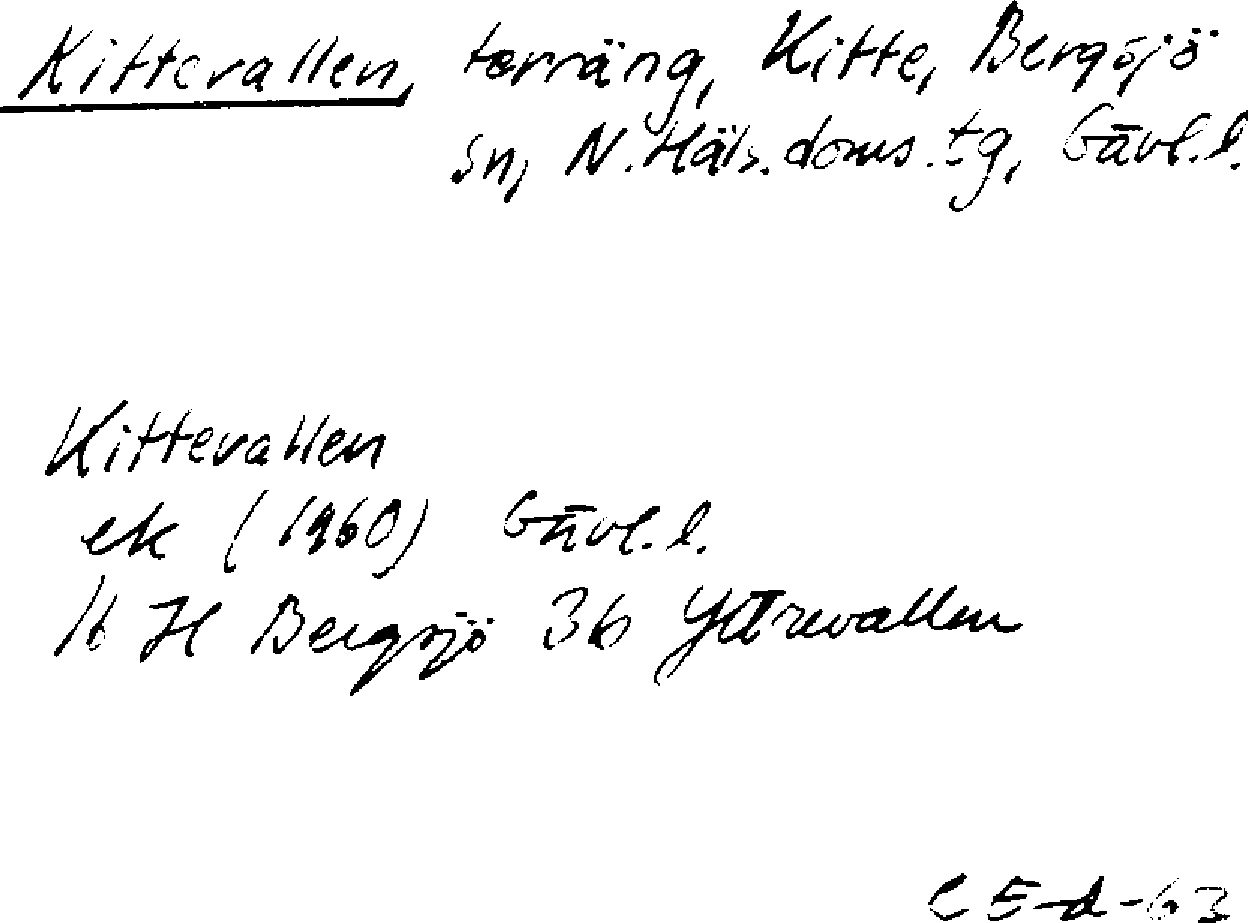 Kittevallen, terräng, Kitte, Bergsjö
sn, N. Häls. doms. tg, Gävl. l.
Kittevallen
ek (1960) Gävl. l.
16 H Bergsjö 3b Yttrevallen
C E-d-63